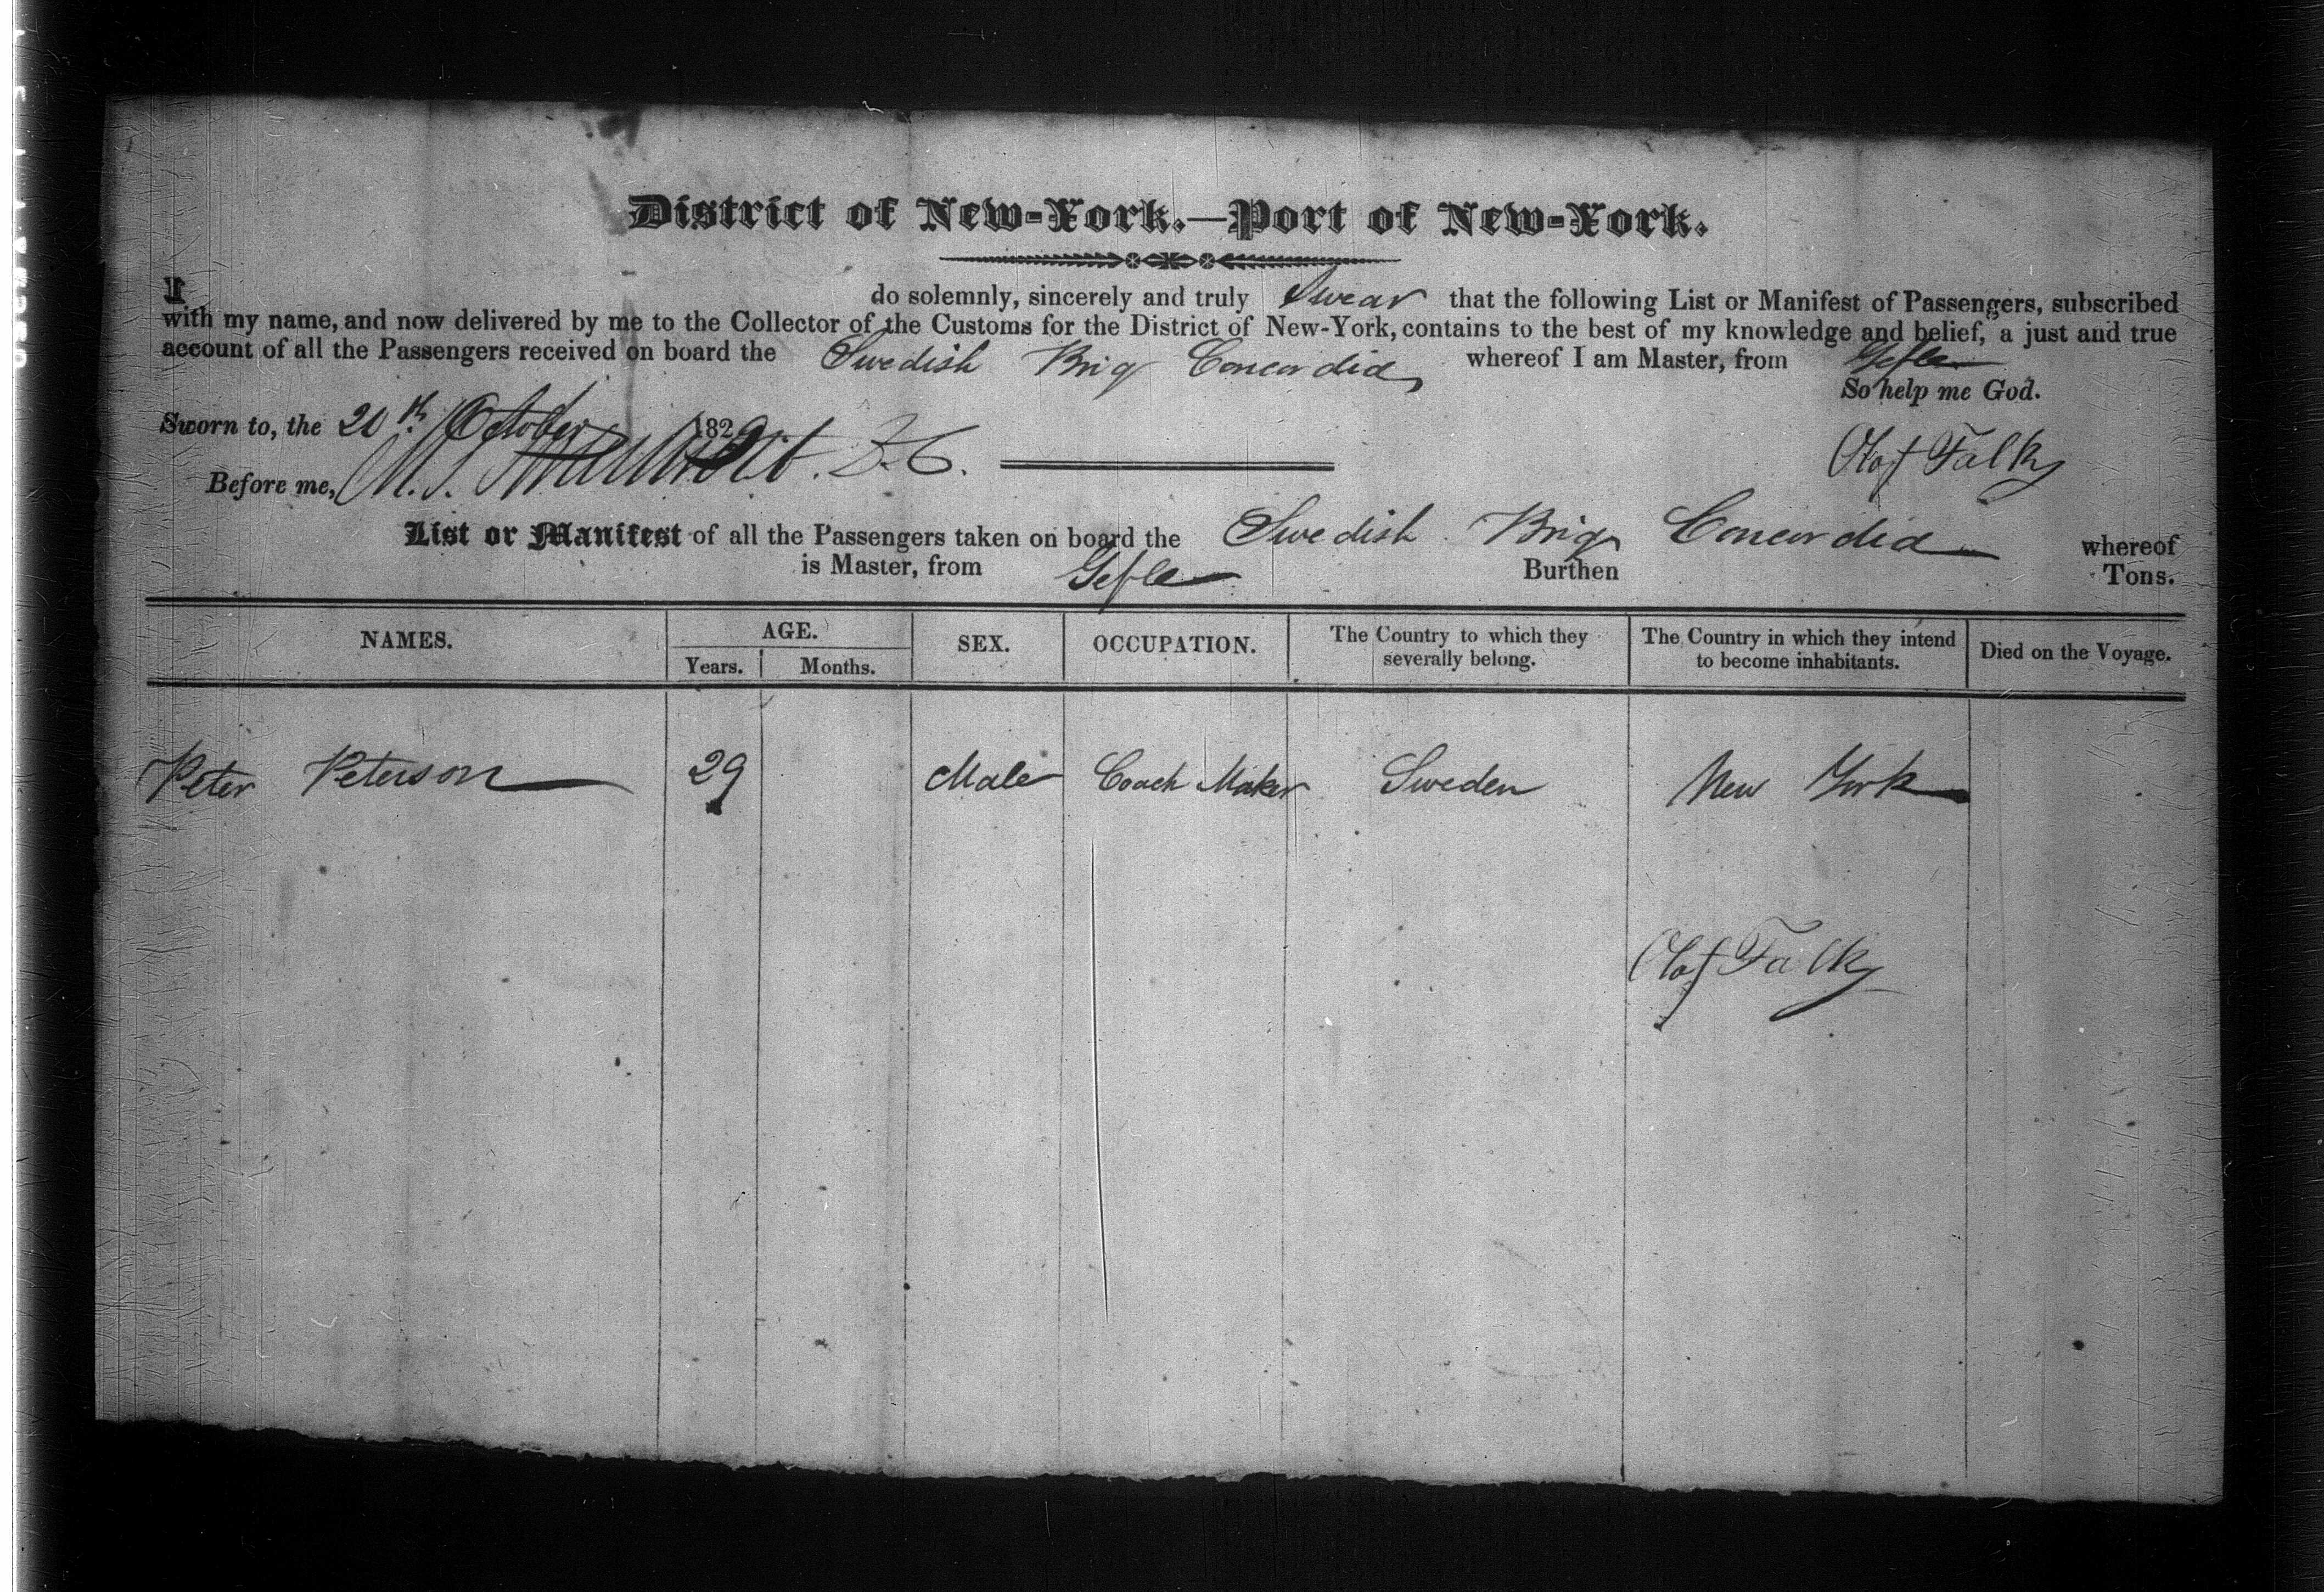 District of New-York.—Port of New-York.
I do solemnly, sincerely and truly Swear that the following List or Manifest of Passengers, subscribed
with my name, and now delivered by me to the Collector of the Customs for the District of New-York, contains to the best of my knowledge and belief, a just and true
account of all the Passengers received on board the Swedish Brig Concordia whereof I am Master, from Gefle
So help me God.
Sworn to, the 20th. October 1829
Olof Falk
Before me, M. S. D.C.
List or Manifest of all the Passengers taken on board the Swedish Brig Concordia whereof
is Master, from Gefle Burthen Tons.
NAMES. AGE. SEX. OCCUPATION. The Country to which they severally belong. The Country in which they intend to become inhabitants. Died on the Voyage.
Years. Months.
Peter Peterson 29 Male Coach Maker Sweden New York
Olof Falk